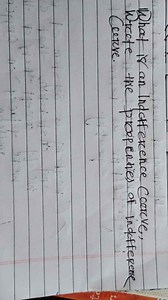 What is an Indifference Coorve,
Wrote the properties of Indifference
Coorve.